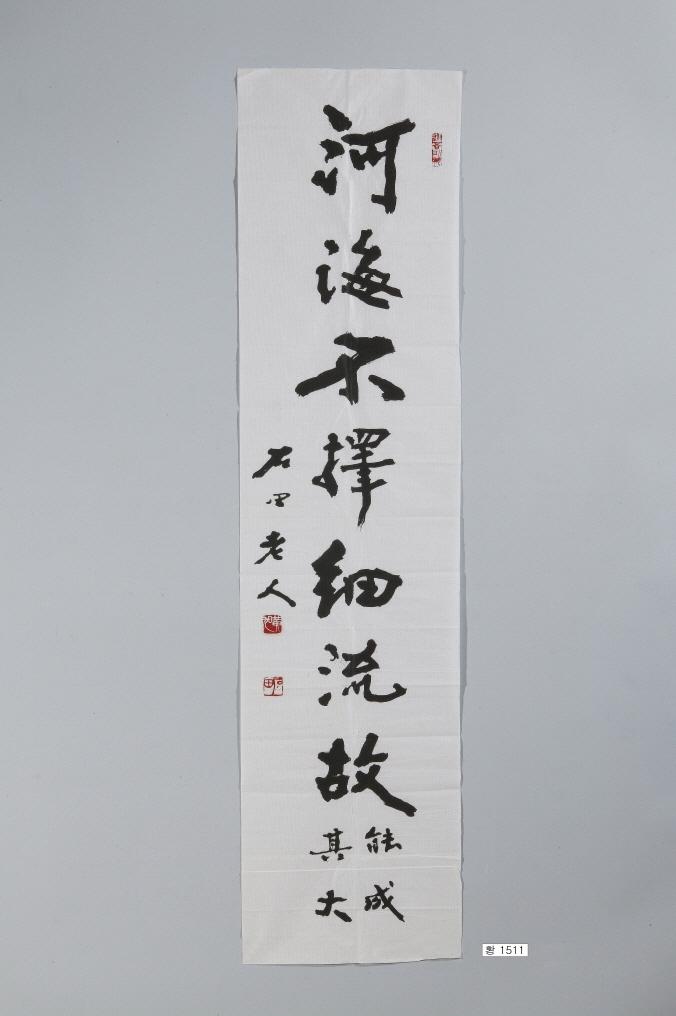 河海不擇細流故
能成
其大
石田老人
황 1511